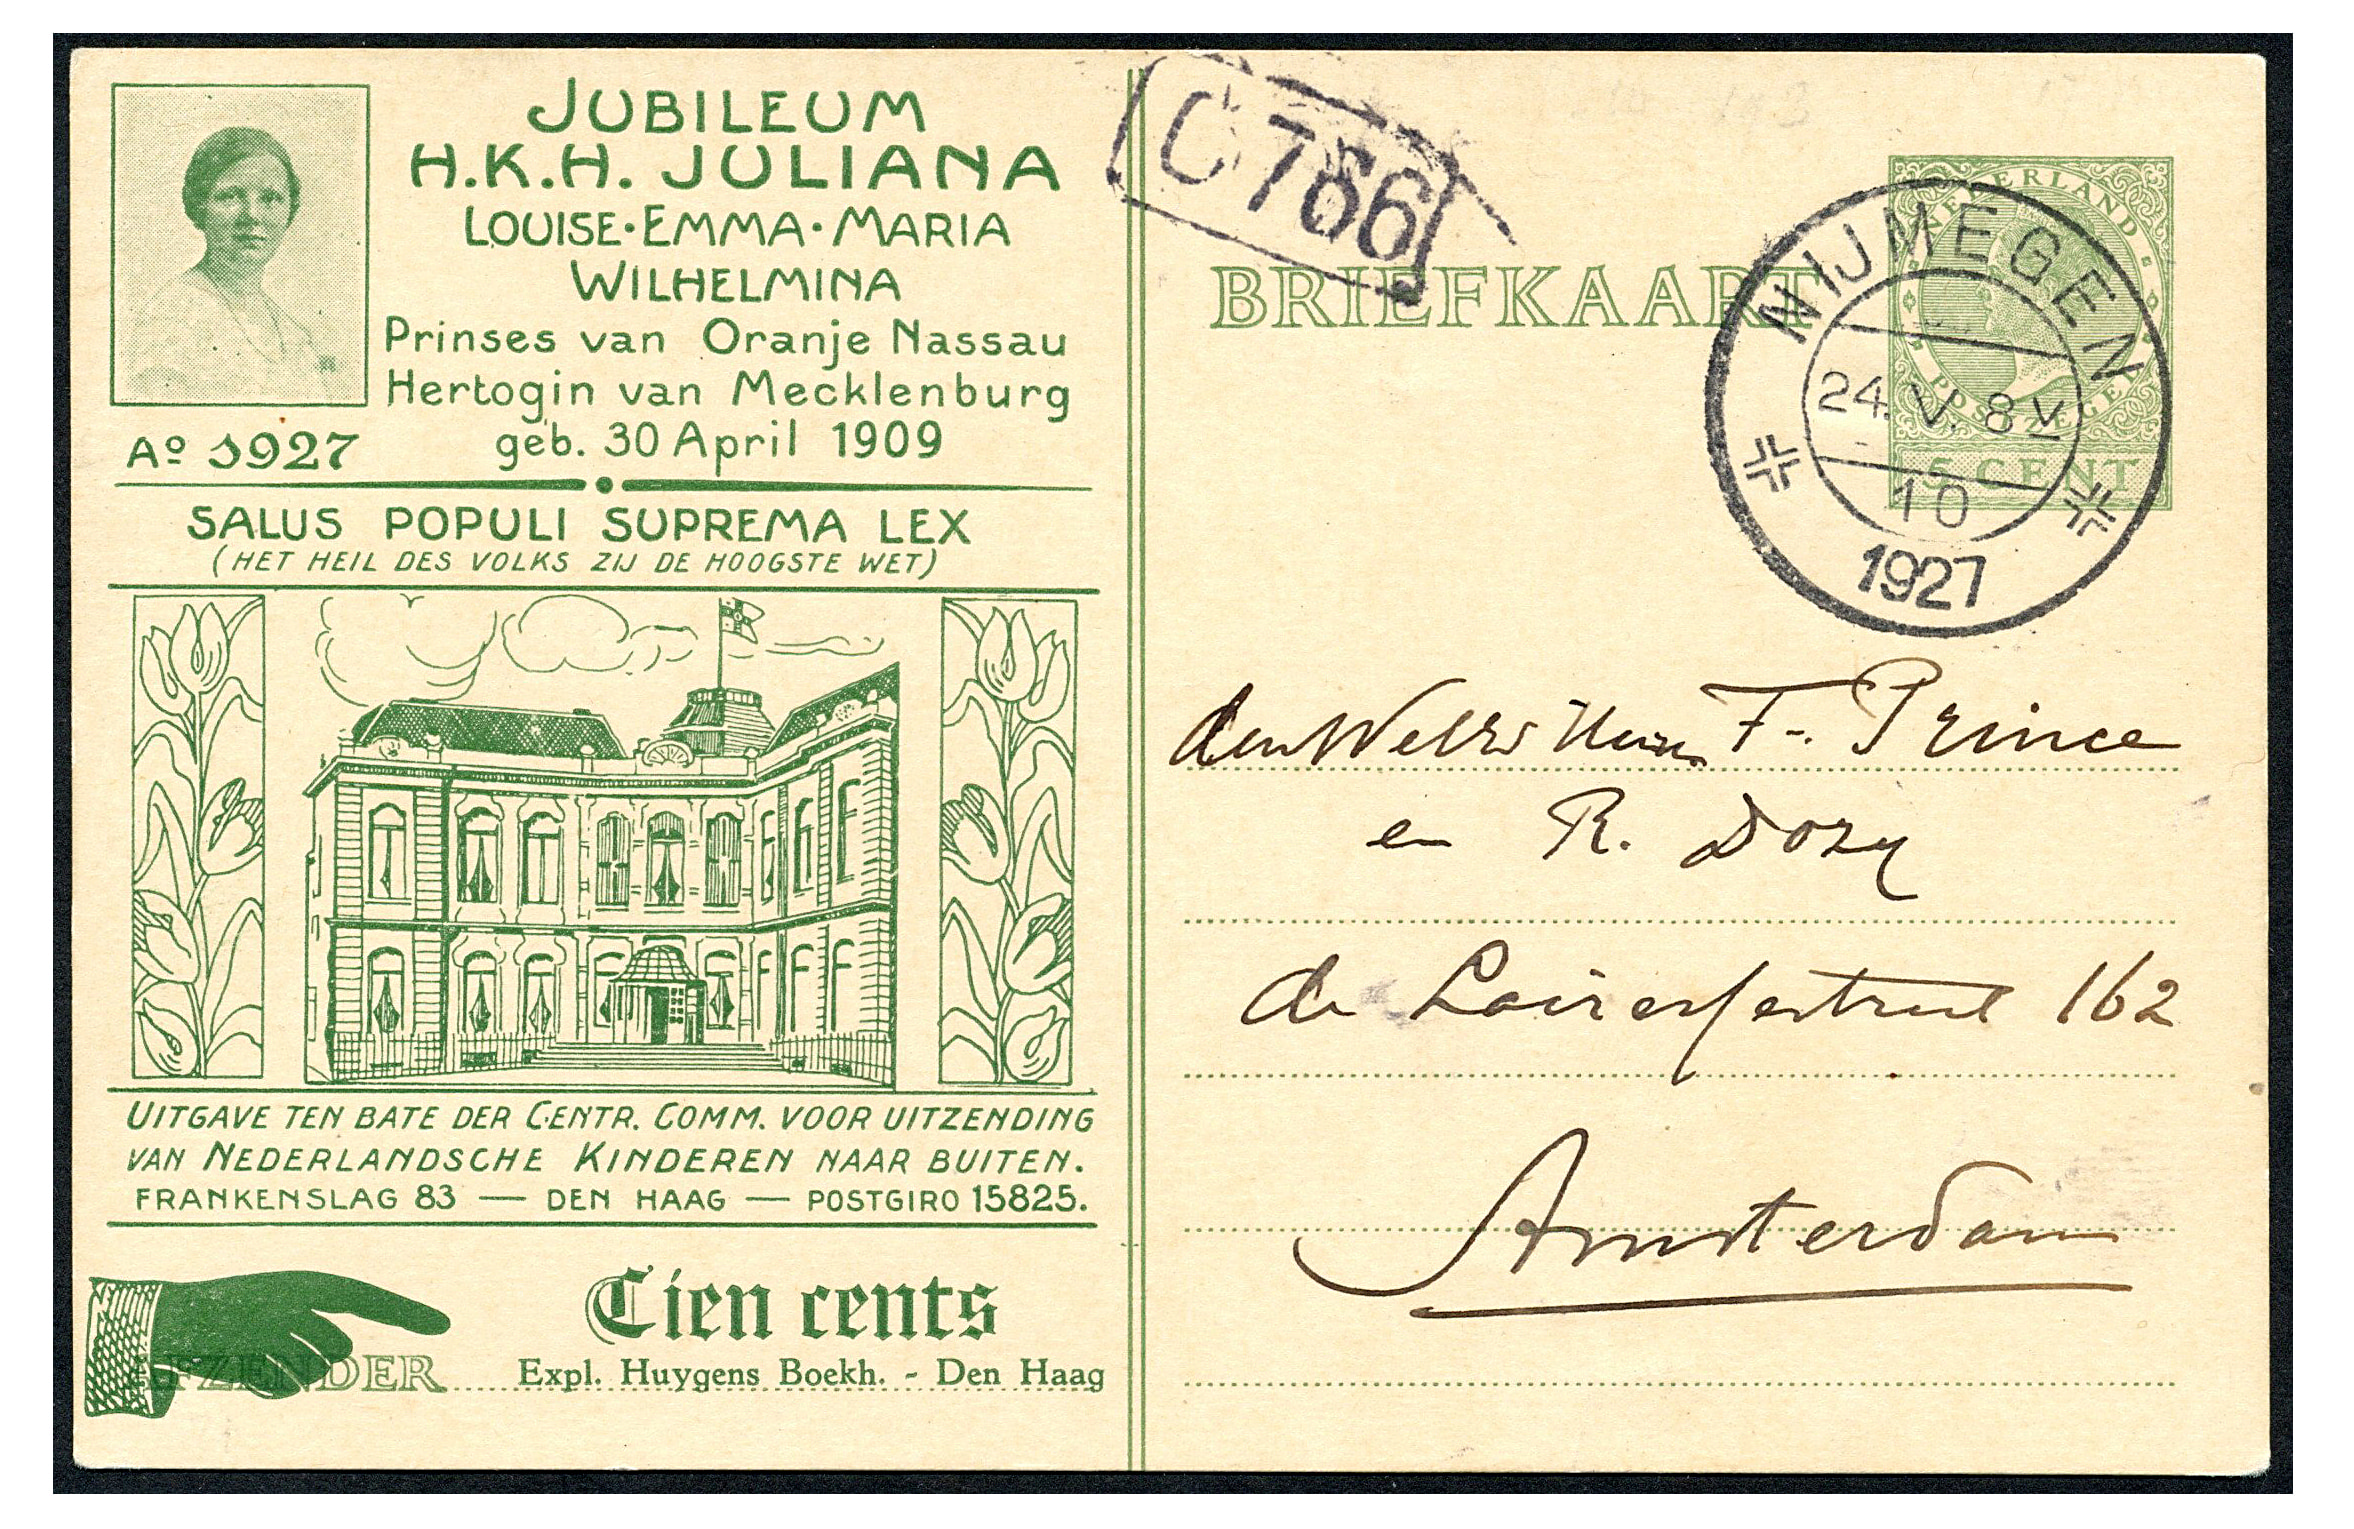 JUBILEUM
H.K.H. JULIANA
LOUISE·EMMA·MARIA
WILHELMINA
Prinses van Oranje Nassau
Hertogin van Mecklenburg
geb. 30 April 1909
Aº 1927
SALUS POPULI SUPREMA LEX
(HET HEIL DES VOLKS ZIJ DE HOOGSTE WET)
UITGAVE TEN BATE DER CENTR. COMM. VOOR UITZENDING
VAN NEDERLANDSCHE KINDEREN NAAR BUITEN.
FRANKENSLAG 83 — DEN HAAG — POSTGIRO 15825.
Tien cents
AFZENDER
Expl. Huygens Boekh. - Den Haag
C 766
BRIEFKAART
NEDERLAND
POSTZEGEL
5 CENT
NIJMEGEN
24. V. 8 V
10
1927
F. Prince
en R. Dozy
de Lairessestraat 162
Amsterdam